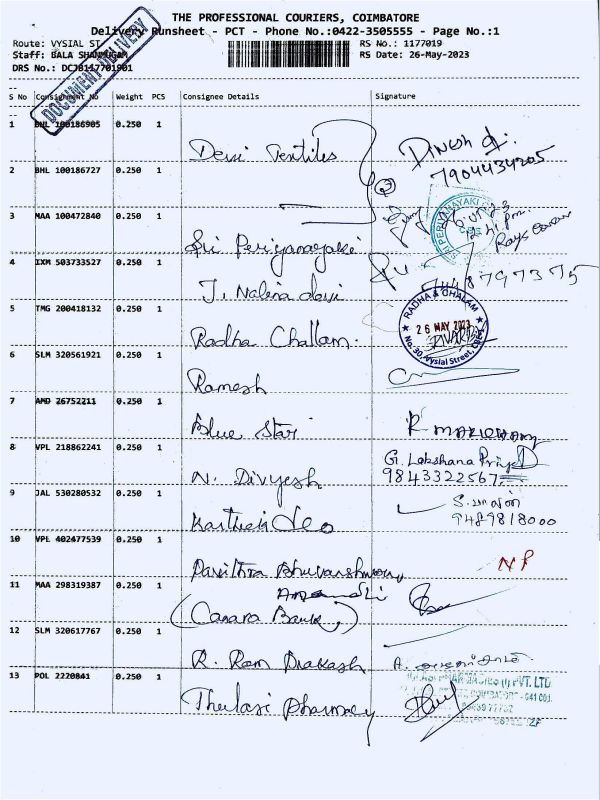 THE PROFESSIONAL COURIERS, COIMBATORE
Delivery Runsheet - PCT - Phone No.:0422-3505555 - Page No.:1
Route: VYSIAL ST
RS No.: 1177019
Staff: BALA SHANMUGAM
RS Date: 26-May-2023
DRS No.: DCJB117701901
DOCUMENT DELIVERY
S No Consignment No Weight PCS Consignee Details Signature
1 BHL 100186905 0.250 1
Devi Textiles
Dinesh
7904434205
2 BHL 100186727 0.250 1
3 MAA 100472840 0.250 1
Sri Periyanayaki
4 IXM 503733527 0.250 1
J. Nalina devi
8797375
5 TMG 200418132 0.250 1
Radha Challam.
RADHA CHALAM
26 MAY 2023
No. 30, Vysial Street,
6 SLM 320561921 0.250 1
Ramesh
7 AMD 26752211 0.250 1
Blue Star
8 VPL 218862241 0.250 1
N. Divyesh
G. Lakshana Priya
9843322567
9 JAL 530280532 0.250 1
Karthick Leo
9489818000
10 VPL 402477539 0.250 1
Pavithra Bhuvaneshwary
NP
11 MAA 298319387 0.250 1
(Canara Bank)
12 SLM 320617767 0.250 1
R. Ram Prakash
13 POL 2220841 0.250 1
Thulasi Pharmacy
PVT. LTD